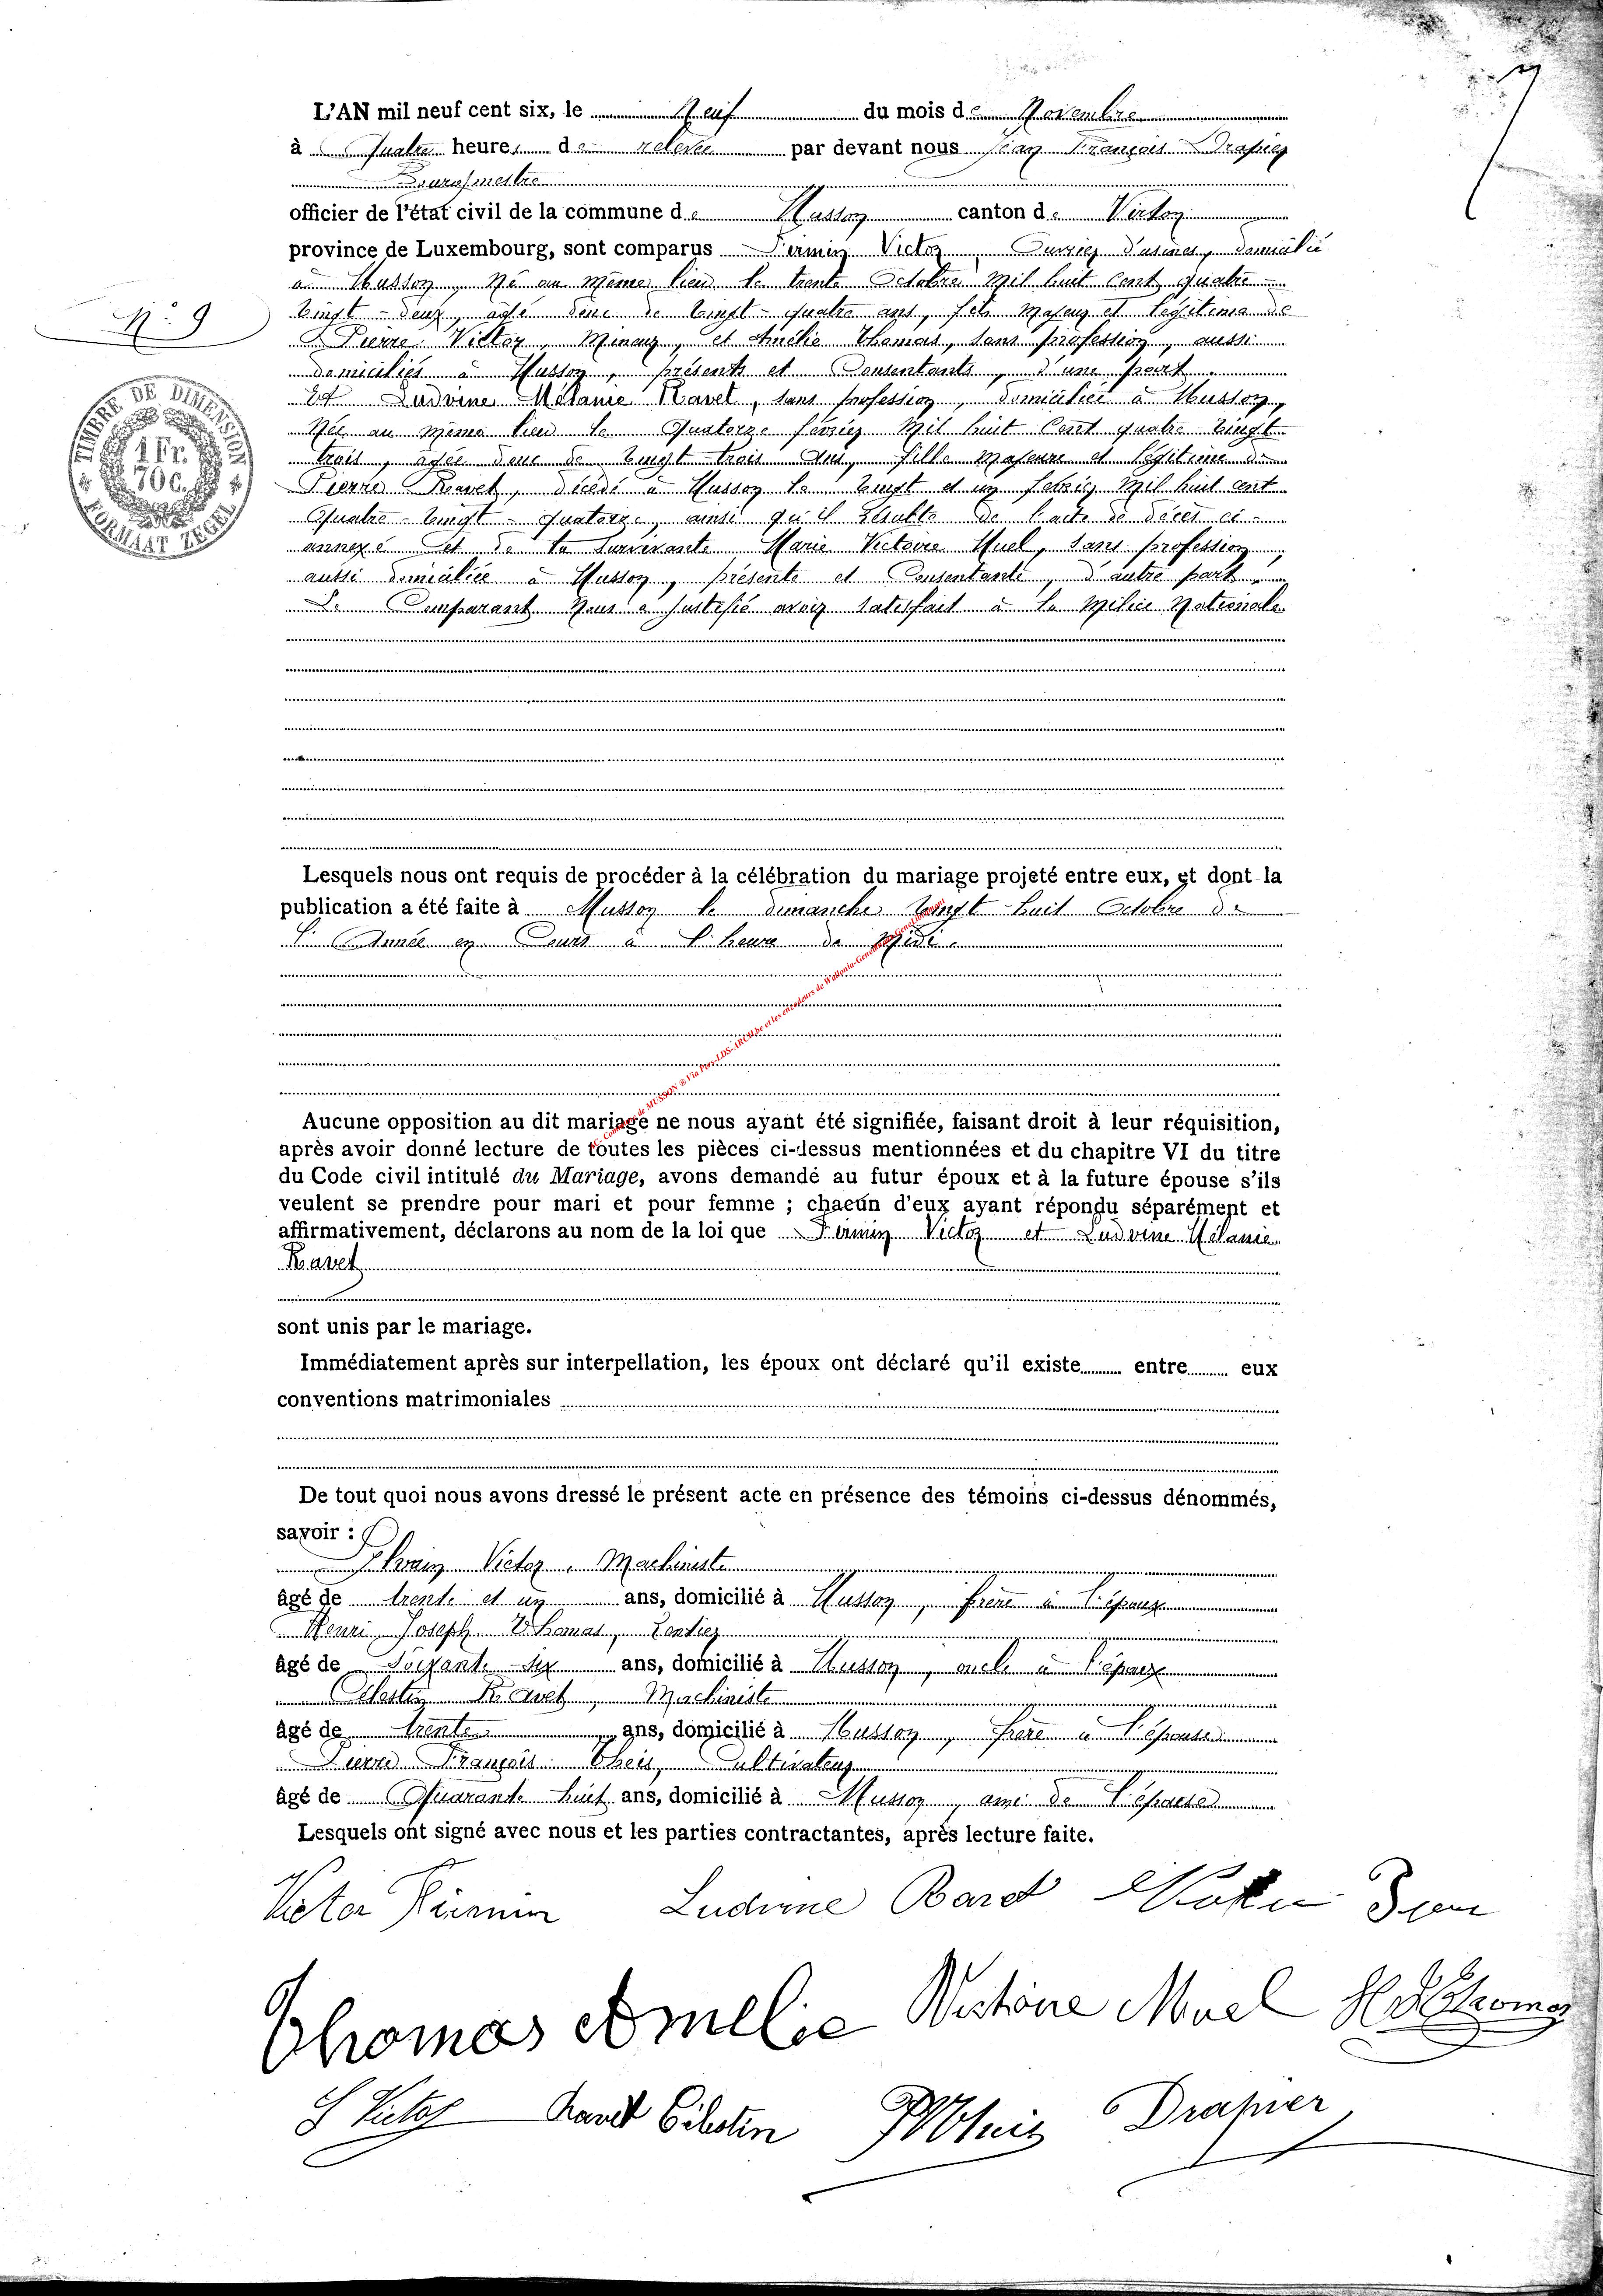 L'AN mil neuf cent six, le Neuf du mois de Novembre
à Quatre heures de relevée par devant nous Jean François Drapier
Bourgmestre
officier de l'état civil de la commune de Musson canton de Virton
province de Luxembourg, sont comparus Firmin Victor, Ouvrier d'usines, domicilié
à Musson, Né au même lieu le trente Octobre Mil huit Cent quatre
Vingt-deux, âgé donc de Vingt-quatre ans, fils Majeur et légitime de
Pierre Victor, Mineur, et Amélie Thomas, sans profession, aussi
domiciliés à Musson, présents et Consentants, d'une part.
N° 9
Et Ludvine Mélanie Ravet, sans profession, domiciliée à Musson,
Née au même lieu le Quatorze février Mil huit Cent quatre Vingt
trois, agée donc de Vingt-trois Ans, fille Majeure et légitime de
Pierre Ravet, décédé à Musson le Vingt et un février Mil huit cent
Quatre-Vingt-Quatorze, ainsi qu'il Résulte de l'acte de décès ci-
annexé et de la Survivante Marie Victoire Muel, sans profession,
aussi domiciliée à Musson, présente et Consentante, d'autre part.
Le Comparant Nous a justifié avoir satisfait à la Milice Nationale.
TIMBRE DE DIMENSION
1 Fr.
70 C.
FORMAAT ZEGEL
Lesquels nous ont requis de procéder à la célébration du mariage projeté entre eux, et dont la
publication a été faite à Musson le dimanche Vingt-huit Octobre de
l'Année en Cours à l'heure de Midi.
Aucune opposition au dit mariage ne nous ayant été signifiée, faisant droit à leur réquisition,
après avoir donné lecture de toutes les pièces ci-dessus mentionnées et du chapitre VI du titre
du Code civil intitulé du Mariage, avons demandé au futur époux et à la future épouse s'ils
veulent se prendre pour mari et pour femme ; chacun d'eux ayant répondu séparément et
affirmativement, déclarons au nom de la loi que Firmin Victor et Ludvine Mélanie
Ravet
sont unis par le mariage.
Immédiatement après sur interpellation, les époux ont déclaré qu'il existe entre eux
conventions matrimoniales
De tout quoi nous avons dressé le présent acte en présence des témoins ci-dessus dénommés,
savoir :
Victor, Machiniste
âgé de trente et un ans, domicilié à Musson, frère à l'époux
Henri Joseph Thomas, Rentier
âgé de Soixante-six ans, domicilié à Musson, oncle à l'époux
Célestin Ravet, Machiniste
âgé de trente ans, domicilié à Musson, frère à l'épouse
Pierre François Theis, Cultivateur
âgé de Quarante huit ans, domicilié à Musson, ami de l'épouse
Lesquels ont signé avec nous et les parties contractantes, après lecture faite.
Victor Firmin Ludvine Ravet
Thomas Amélie Victoire Muel H J Thomas
S Victor Ravet Célestin Theis Drapier